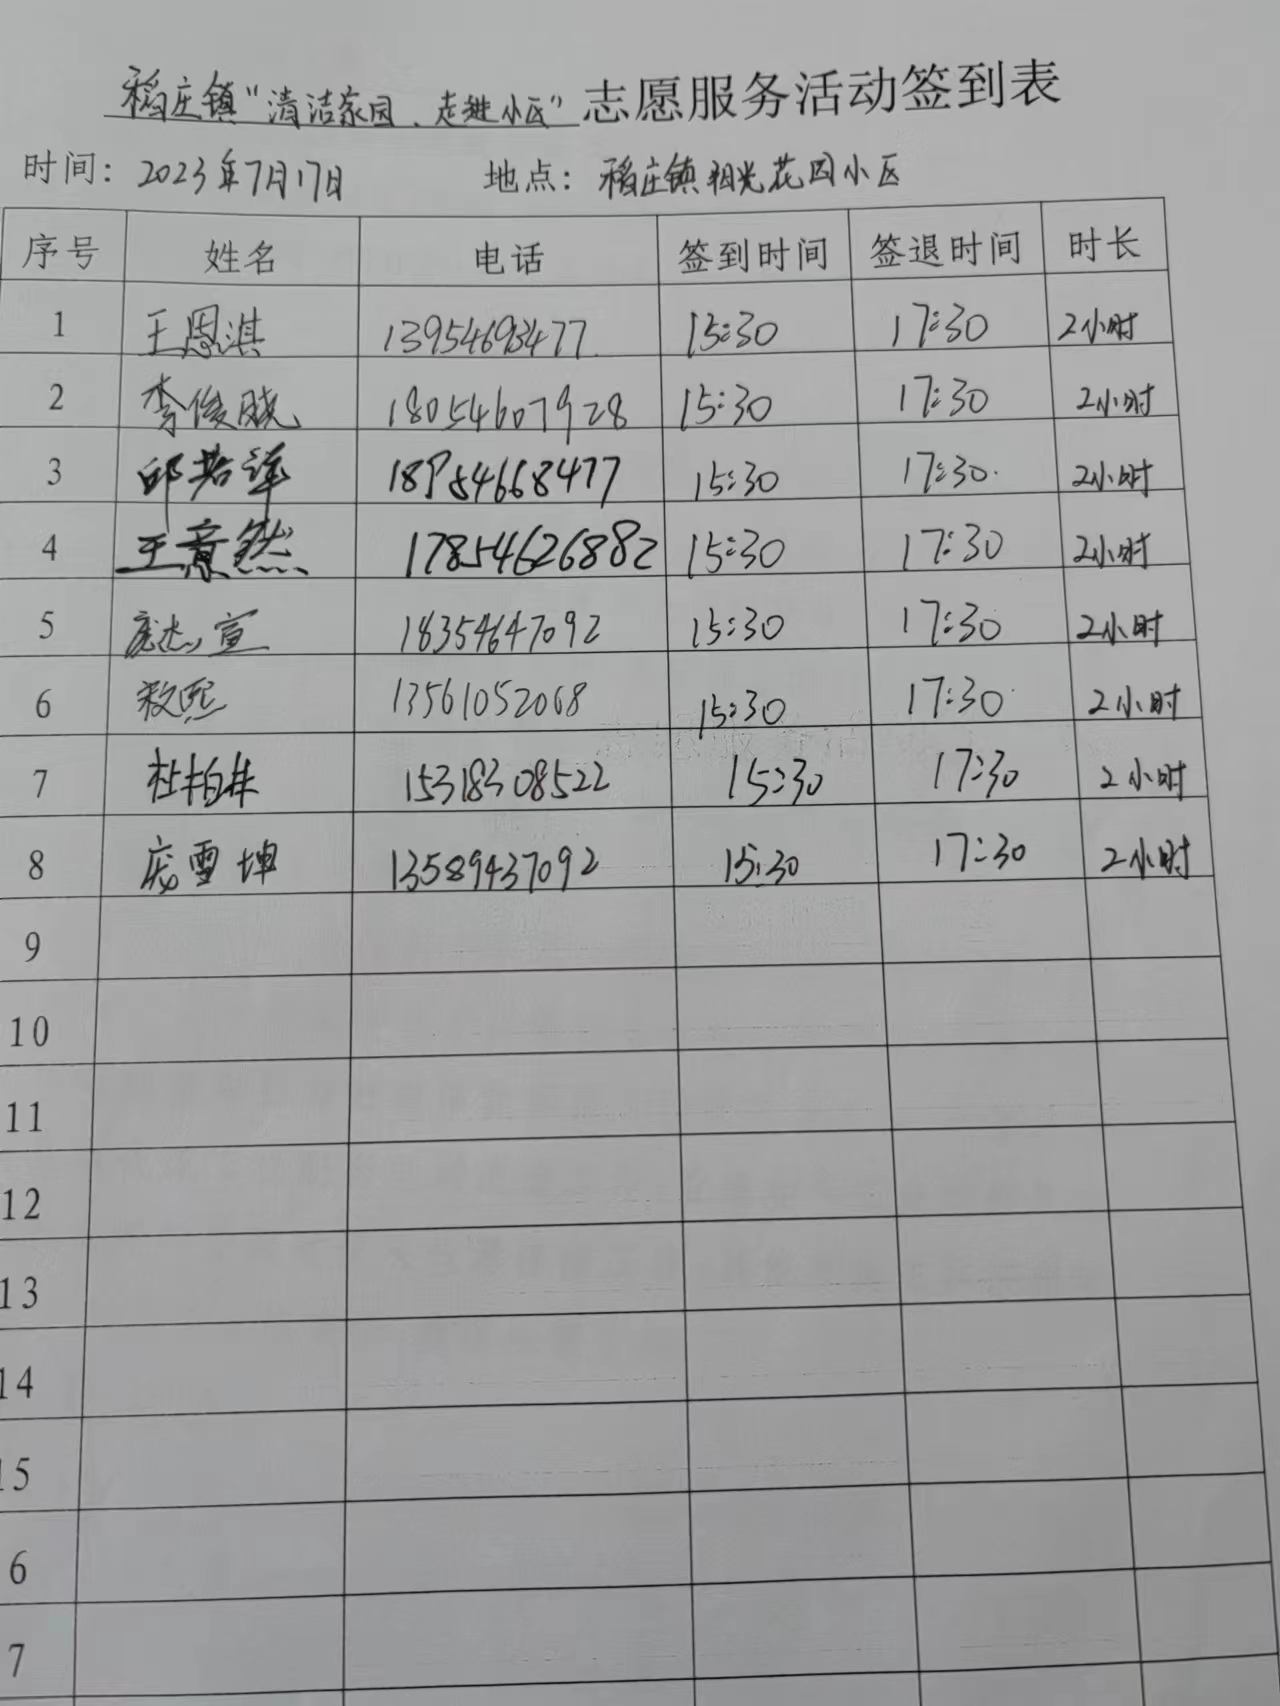 稻庄镇“清洁家园、走进小区”志愿服务活动签到表
时间：2023年7月17日 地点：稻庄镇阳光花园小区
序号 姓名 电话 签到时间 签退时间 时长
1 王恩淇 13954693477 15:30 17:30 2小时
2 李俊晓 18054607928 15:30 17:30 2小时
3 邱若泽 18954668477 15:30 17:30 2小时
4 王意然 17854626882 15:30 17:30 2小时
5 宣 18354647092 15:30 17:30 2小时
6 熙 13561052068 15:30 17:30 2小时
7 杜柏林 15318308522 15:30 17:30 2小时
8 庞雪坤 13589437092 15:30 17:30 2小时
9
10
11
12
13
14
15
6
7